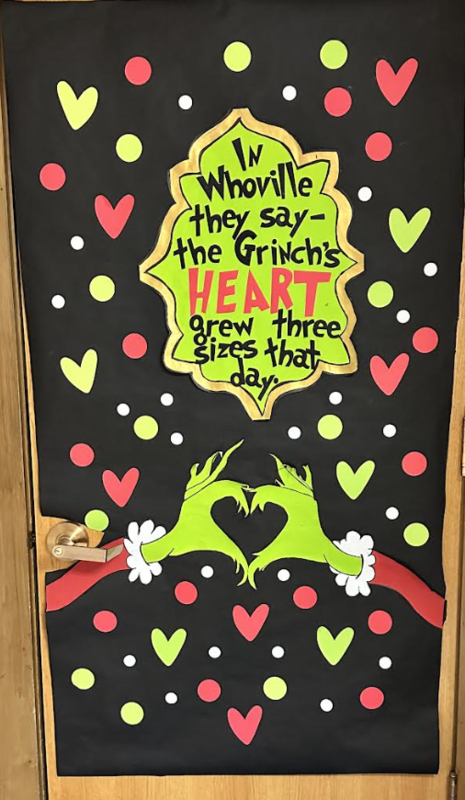 In
Whoville
they say-
the Grinch's
HEART
grew three
sizes that
day.